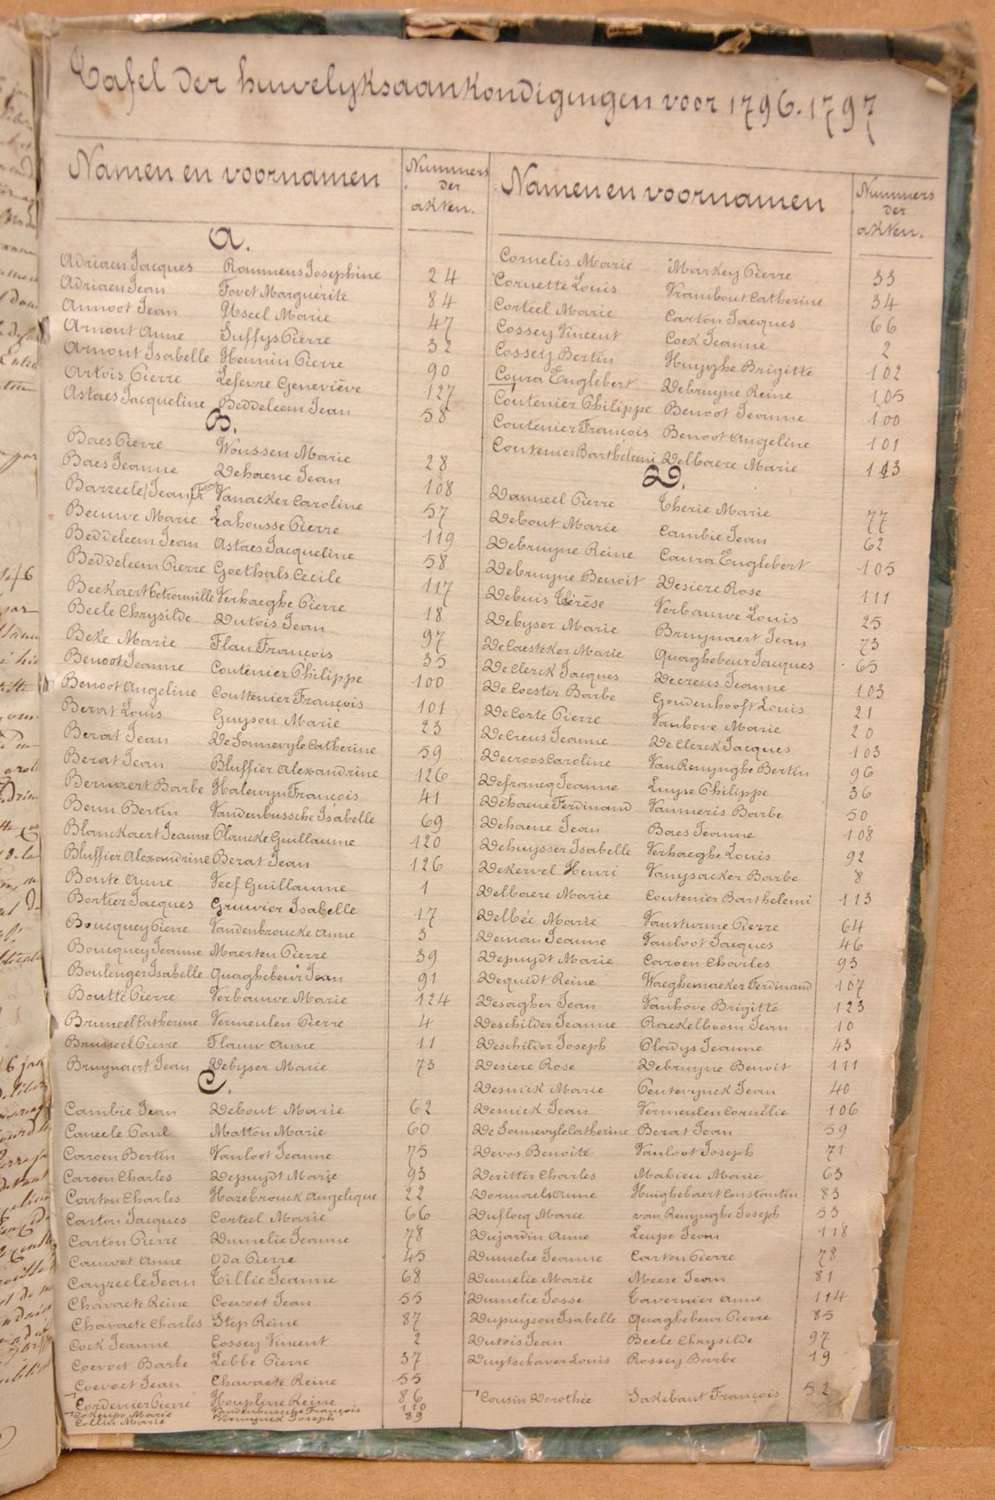 Tafel der huwelijksaankondigingen voor 1796-1797
Namen en voornamen
Nummers der akten.
A.
Adriaen Jacques Rommens Josephine 24
Adriaen Jean Fovet Marguérite 84
Annoot Jean Asseel Marie 47
Arnout Anne Suffys Pierre 32
Arnout Isabelle Hennin Pierre 90
Artois Pierre Lefevre Geneviève 127
Astaes Jacqueline Beddeleem Jean 58
B.
Baes Pierre Woussen Marie 28
Baes Jeanne Dehaene Jean 108
Barzeele Jean Vanacker Caroline 57
Beeuwe Marie Lahousse Pierre 119
Beddeleem Jean Astaes Jacqueline 58
Beddeleem Pierre Goethals Cecile 117
Beekaert Petronille Verhaeghe Pierre 18
Beele Chrysilde Dutois Jean 97
Beke Marie Flau François 35
Benoot Jeanne Coutenier Philippe 100
Benoot Angeline Couttenier François 101
Berat Louis Guyson Marie 23
Berat Jean De Sonnevyle Catherine 59
Berat Jean Bluffier Alexandrine 126
Bernaert Barbe Halewyn François 41
Beun Bertin Vandenbussche Isabelle 69
Blanckaert Jeanne Plancke Guillaume 120
Bluffier Alexandrine Berat Jean 126
Boute Anne Veef Guillaume 1
Bortier Jacques Gruwier Isabelle 17
Boucquey Pierre Vandenbroucke Anne 3
Boucquey Jeanne Maerten Pierre 39
Boulenger Isabelle Quaghebeur Jean 91
Boutte Pierre Verbauwe Marie 124
Bruneel Catherine Vermeulen Pierre 4
Bruneel Pierre Flauw Anne 11
Bruynaert Jean Debyser Marie 73
C.
Cambie Jean Debout Marie 62
Caneele Paul Matton Marie 60
Caroen Bertin Vanloot Jeanne 75
Caroen Charles Depuydt Marie 93
Carton Charles Hazebrouck Angelique 22
Carton Jacques Corteel Marie 66
Carton Pierre Dumelie Jeanne 78
Cauwet Anne Oda Pierre 45
Cayzeele Jean Tillie Jeanne 68
Chavaete Reine Coevoet Jean 55
Chavaete Charles Step Reine 87
Cock Jeanne Cossey Vincent 2
Coevoet Barbe Lebbe Pierre 37
Coevoet Jean Chavaete Reine 55
Cordenier Pierre Houpline Reine 86
Marie Vandenbussche François 110
Collier Marie Joseph 89
Namen en voornamen
Nummers der akten.
Cornelis Marie Markey Pierre 33
Cornette Louis Vrambout Catherine 34
Corteel Marie Carton Jacques 66
Cossey Vincent Cock Jeanne 2
Cossey Bertin Huyghe Brigitte 102
Coura Englebert Debruyne Reine 105
Coutenier Philippe Benoot Jeanne 100
Coutenier François Benoot Angeline 101
Coutenier Barthelemi Delbaere Marie 113
D.
Danneel Pierre Therie Marie 77
Debout Marie Cambie Jean 62
Debruyne Reine Coura Englebert 105
Debruyne Benoit Desiere Rose 111
Debuis Thérèse Verbauwe Louis 25
Debyser Marie Bruynaert Jean 73
DeCaesteker Marie Quaghebeur Jacques 65
DeClerck Jacques Decreus Jeanne 103
DeCoester Barbe Goudenhooft Louis 21
DeCorte Pierre Vanhove Marie 20
DeCreus Jeanne De Clerck Jacques 103
Decroos Caroline Van Renynghe Bertin 96
Defrancq Jeanne Luyse Philippe 36
Dehaene Ferdinand Vanneris Barbe 50
Dehaene Jean Baes Jeanne 108
Dehuysser Isabelle Verhaeghe Louis 92
Dekervel Henri Vanysacker Barbe 8
Delbaere Marie Coutenier Barthélemi 113
Delbée Marie Vansturme Pierre 64
Deman Jeanne Vanloot Jacques 46
Depuydt Marie Caroen Charles 93
Dequidt Reine Waeghemacker Ferdinand 107
Desagher Jean Vanhove Brigitte 123
Deschilder Jeanne Rackelboom Jean 10
Deschilder Joseph Pladys Jeanne 43
Desiere Rose Debruyne Benoit 111
Desnick Marie Penterynck Jean 40
Desnick Jean Vermeulen Cornélie 106
De Sonnevyle Catherine Berat Jean 59
Devos Benoite Vanloot Joseph 71
Deritter Charles Mahieu Marie 63
Dormaels Anne Huighebaert Constantin 83
Duflocq Marie van Renynghe Joseph 53
Dujardin Anne Leupe Jean 118
Dumelie Jeanne Carton Pierre 78
Dumelie Marie Meese Jean 81
Dumelie Josse Tavernier Anne 114
Dupuyson Isabelle Quaghebeur Pierre 85
Dutois Jean Beele Chrysilde 97
Duytschaver Louis Rossey Barbe 19
Cousin Dorothée Sakebaut François 52